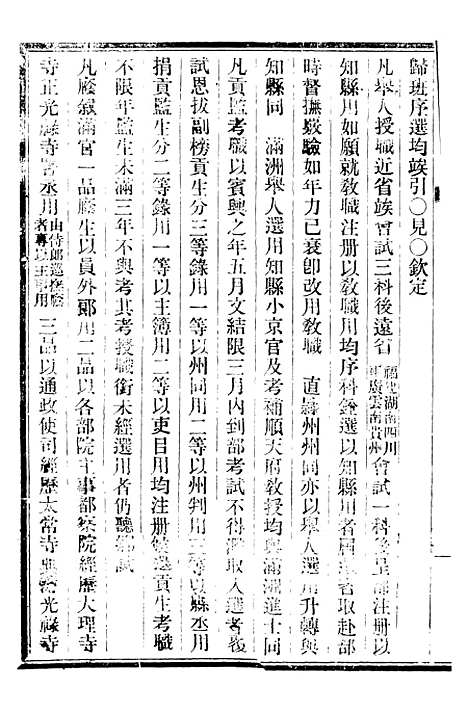 歸班序選均竢引○見○欽定
凡舉人授職近省竢會試三科後遠省福建湖南四川兩廣雲南貴州會試一科後呈部注册以
知縣用如願就敎職注册以敎職用均序科銓選以知縣用者屆選者取赴部
時督撫驗如年力已衰卽改用敎職 直隸州州同亦以舉人選用升轉與
知縣同 滿洲舉人選用知縣小京官及考補順天府敎授均與滿洲進士同
凡貢監考職以賓興之年五月文結限三月內到部考試不得濫取入選者後
試恩拔副榜貢生分三等錄用一等以州同用二等以州判用三等以縣丞用
捐貢監生分二等錄用一等以主簿用二等以吏目用均注册選貢生考職
不限年監生未滿三年不與考其考授職銜未經選用者仍聽試
凡廕敘滿官一品廕生以員外郎用二品以各部院主事都察院經歷大理寺
寺正光祿寺署丞用由侍郎巡撫廕者專以主事用三品以通政使司經歷太常寺典簿光祿寺